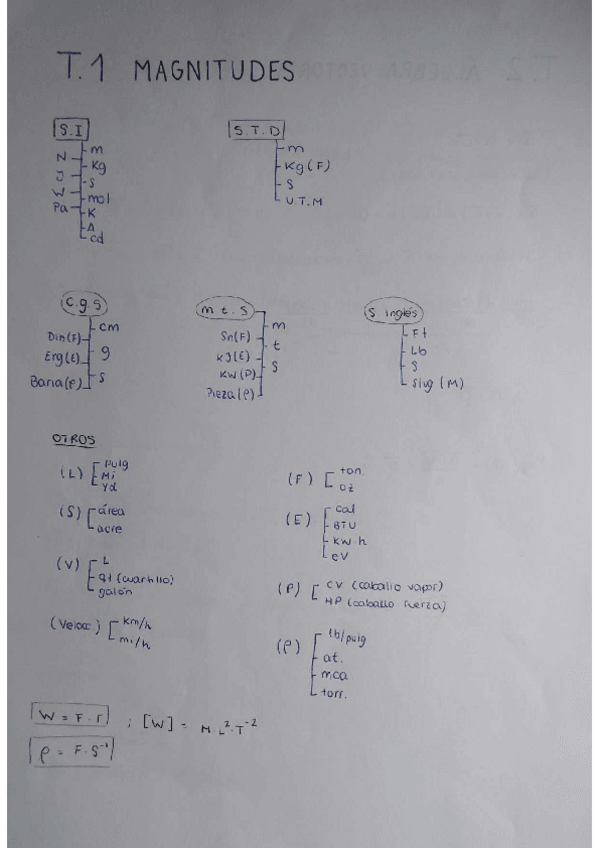 T.1 MAGNITUDES
S.I
m
N
Kg
J
s
W
mol
Pa
K
A
cd
S.T.D
m
Kg(F)
S
U.T.M
c.g.s
cm
Din(F)
g
Erg(E)
s
Baria(P)
m t. S
m
Sn(F)
t
KJ(E)
S
KW(P)
Pieza(P)
S inglés
Ft
Lb
S
Slug (M)
OTROS
(L) pulg
Mi
Yd
(S) área
acre
(V) L
qt (cuartillo)
galón
(Veloc) Km/h
mi/h
(F) ton.
oz
(E) cal
BTU
KW.h
eV
(P) CV (caballo vapor)
HP (caballo fuerza)
(P) lb/pulg
at.
mca
torr.
W = F.r ; [W] = M.L².T⁻²
P = F.S⁻¹